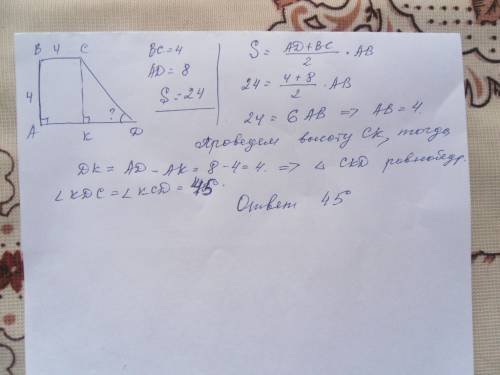 B 4 C
BC = 4
AD = 8
S = 24
4
?
A
K
D
S = (AD+BC)/2 · AB
24 = (4+8)/2 · AB
24 = 6 AB => AB = 4.
Проведем высоту CK, тогда
DK = AD – AK = 8 – 4 = 4. => △ CKD равнобедр.
∠KDC = ∠KCD = 45°.
Ответ 45°